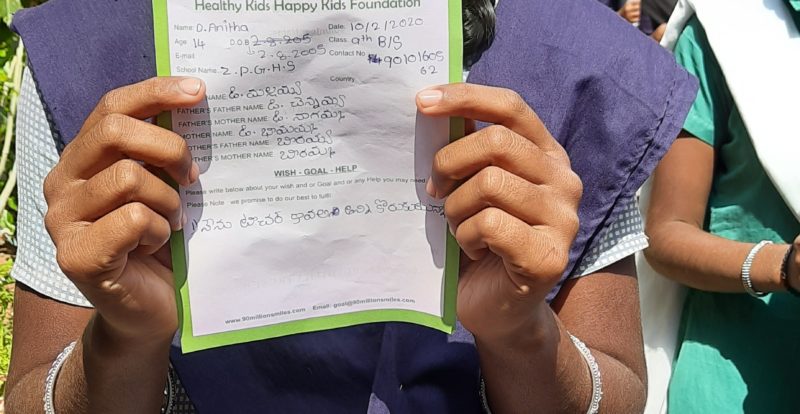 Healthy Kids Happy Kids Foundation
Name: D. Anitha Date: 10/2/2020
Age 14 DOB 2-8-2005 Class: 9th B/S
E-mail 2-8-2005 Contact No 90101605
School Name: Z.P.G.H.S 62
Country
NAME: డి. మల్లయ్య
FATHER'S FATHER NAME: డి. చెన్నయ్య
FATHER'S MOTHER NAME: డి. నాగమ్మ
MOTHER NAME: డి.
MOTHER'S FATHER NAME:
MOTHER'S MOTHER NAME:
WISH - GOAL - HELP
Please write below about your wish and or Goal and or any Help you may need
Please Note we promise to do our best to fulfil
నేను టీచర్ కావాలని
www.90millionsmiles.com Email: goal@90millionsmiles.com